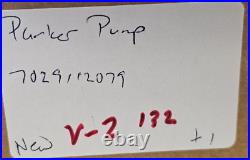 Parker Pump
7029112079
New V-2 132 +1
ebay